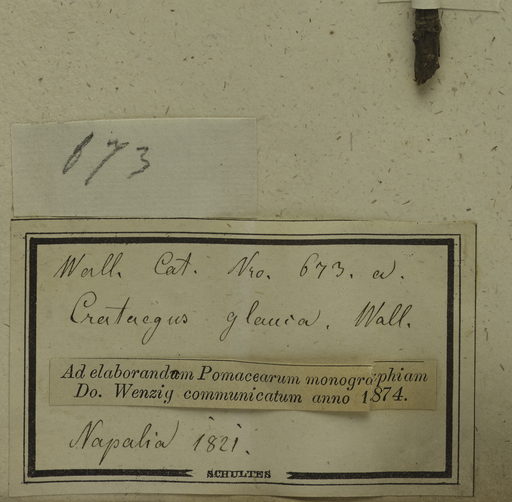 673
Wall. Cat. Nro. 673. a.
Crataegus glauca. Wall.
Ad elaborandam Pomacearum monographiam
Do. Wenzig communicatum anno 1874.
Napalia 1821.
SCHULTES